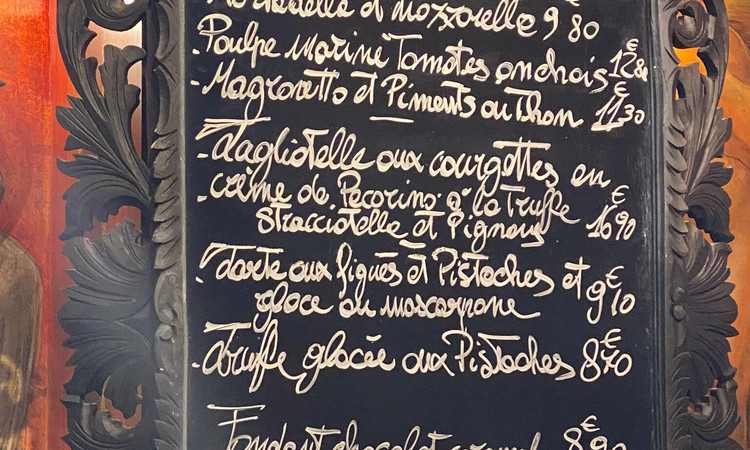 et Mozzarelle 9€80
- Poulpe Mariné Tomates anchois 12€80
- Magronetto et Piments au Thon 11€30
- Tagliatelle aux courgettes en
- crème de Pecorino à la Truffe
Stracciatella et Pignons 16€90
- Tarte aux figues et Pistaches et
glace au mascarpone 9€10
- Truffe glacée aux Pistaches 8€70
Fondant chocolat 8€90